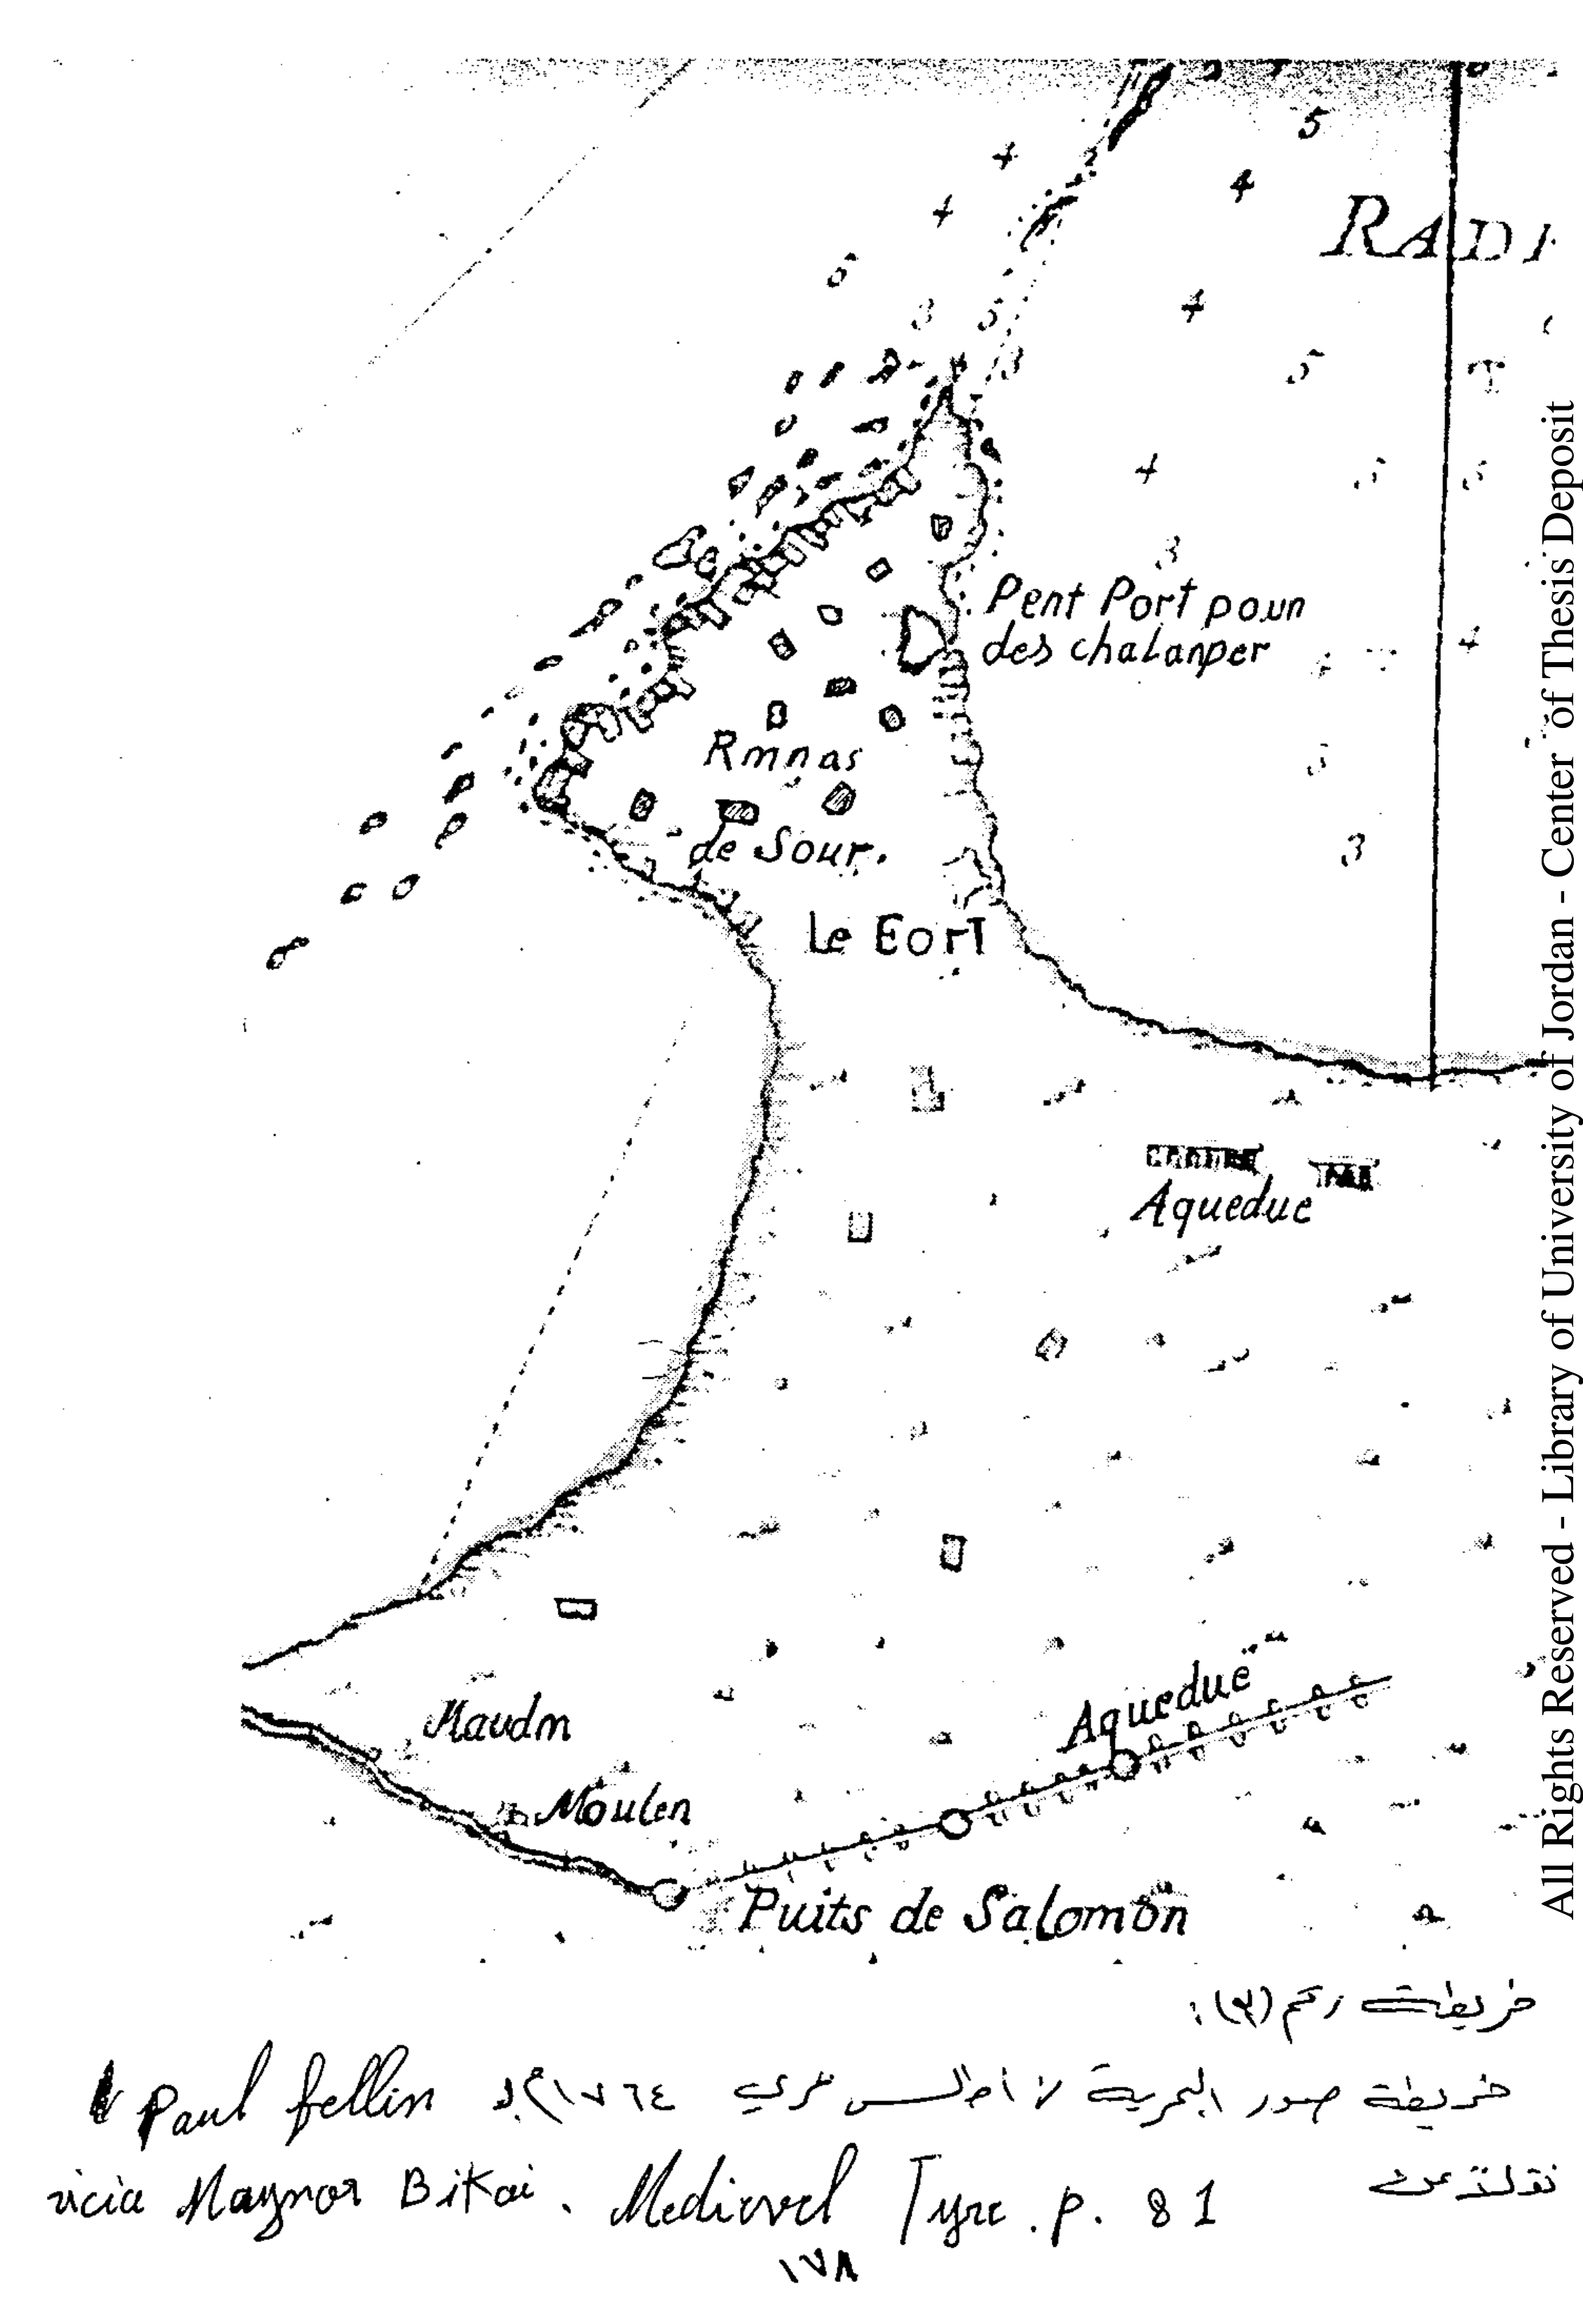 5
4
4
4
RADE
5
3
5
3
4
5
4
5
5
5
3
Pent Port poun
des chalanper
4
4
Rmnas
5
de Sour.
3
Le Eort
Aqueduc
Maudm
Aqueduc
Moulen
Puits de Salomon
خريطة رقم (٣):
خريطة صور البحرية لأطلس ١٧٦٤م. Paul fellin
نقلاً عن Maynor Bikai. Medievel Tyre. p. 81
١٧٨
All Rights Reserved - Library of University of Jordan - Center of Thesis Deposit